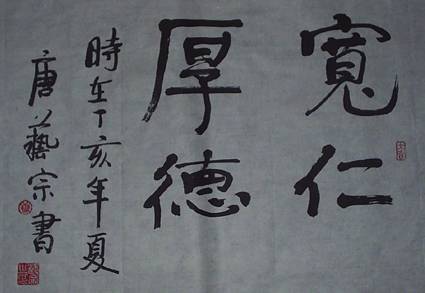 寬仁
厚德
時在丁亥年夏
唐藝宗書